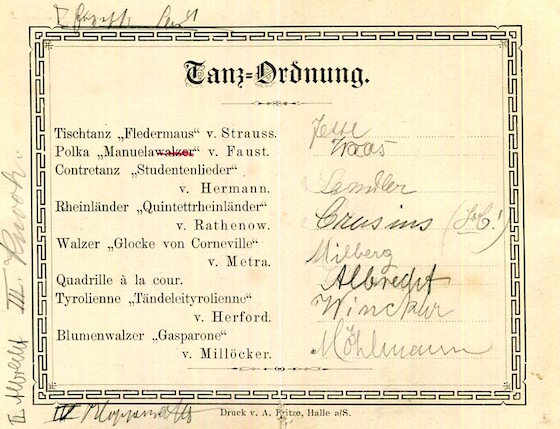 I
Tanz-Ordnung.
Tischtanz „Fledermaus“ v. Strauss. Jesse
Polka „Manuelawalzer“ v. Faust. Waas
Contretanz „Studentenlieder“
v. Hermann. Sandler
Rheinländer „Quintettrheinländer“
v. Rathenow. Crusius
Walzer „Glocke von Corneville“
v. Metra. Milberg
Quadrille à la cour. Albrecht
Tyrolienne „Tändeleityrolienne“
v. Herford. Winckler
Blumenwalzer „Gasparone“
v. Millöcker. Möhlmann
Druck v. A. Fritze, Halle a/S.
II Albrecht III. Knoch.
IV